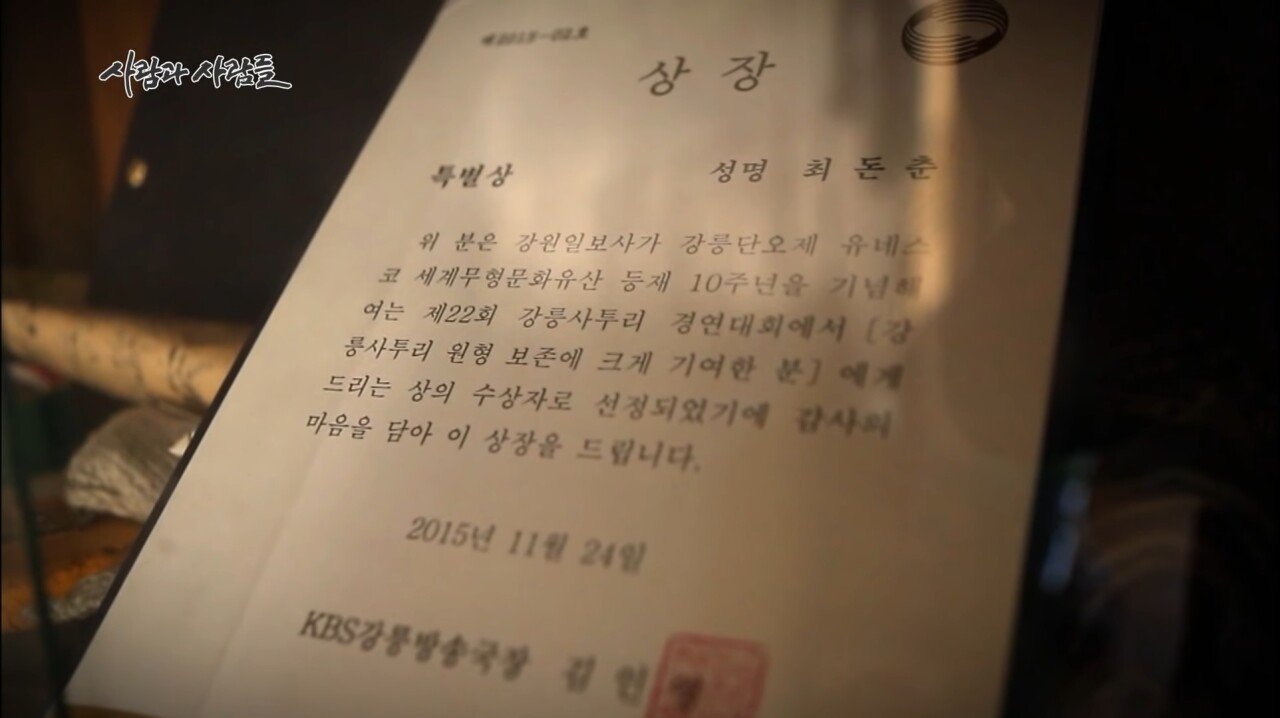 사람과 사람들
상 장
특별상 성명 최 돈 춘
위 분은 강원일보사가 강릉단오제 유네스
코 세계무형문화유산 등재 10주년을 기념해
여는 제22회 강릉사투리 경연대회에서 [강
릉사투리 원형 보존에 크게 기여한 분] 에게
드리는 상의 수상자로 선정되었기에 감사의
마음을 담아 이 상장을 드립니다.
2015년 11월 24일
KBS강릉방송국장 김 인